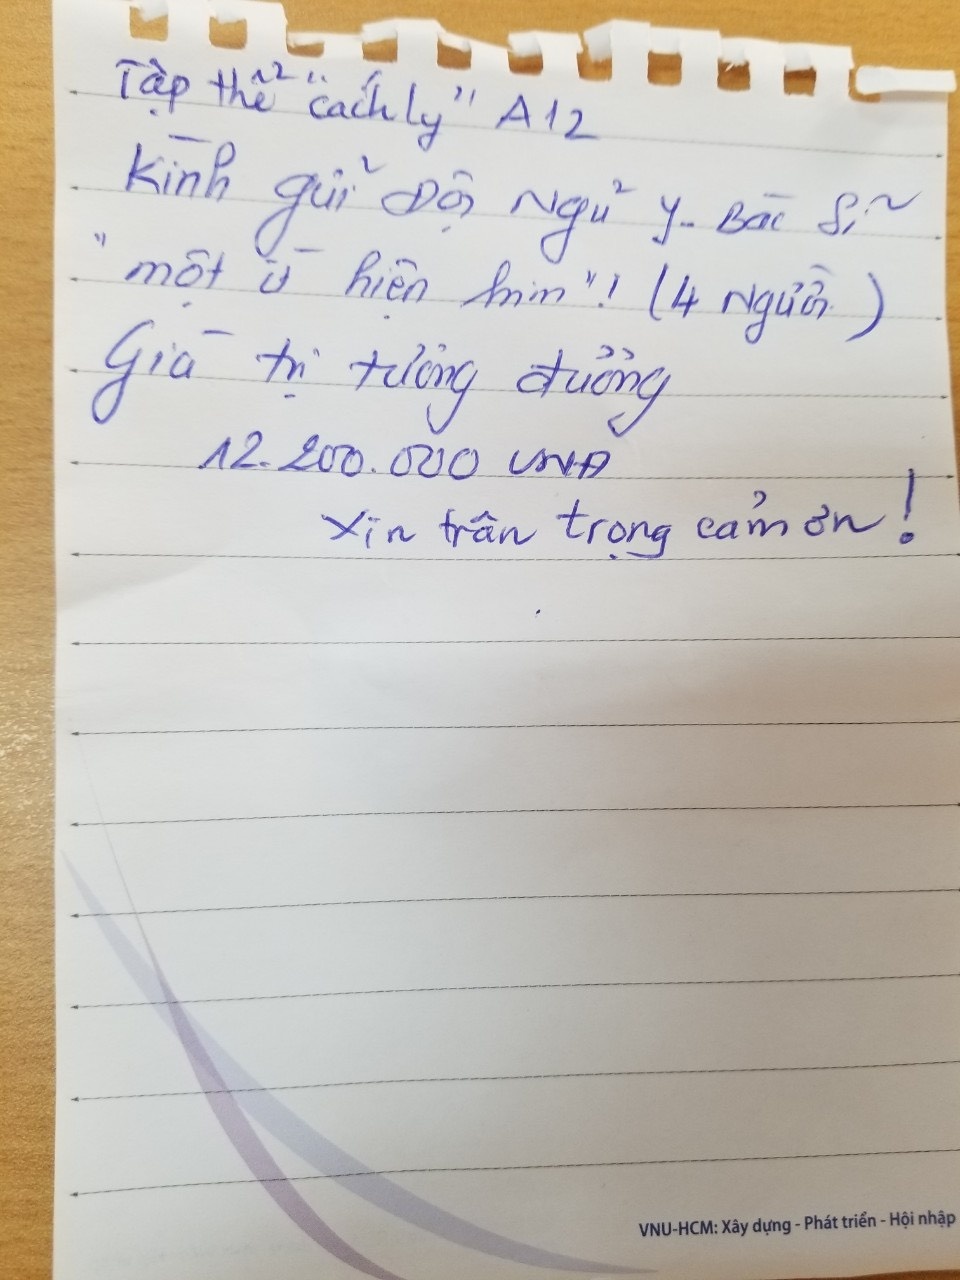 Tập thể "cách ly" A12
Kính gửi Đội Ngủ y. Bác Sĩ
"một ít hiện kim"! (4 Người)
Giá trị tương đương
12.200.000 VNĐ
Xin trân trọng cảm ơn!
VNU-HCM: Xây dựng - Phát triển - Hội nhập